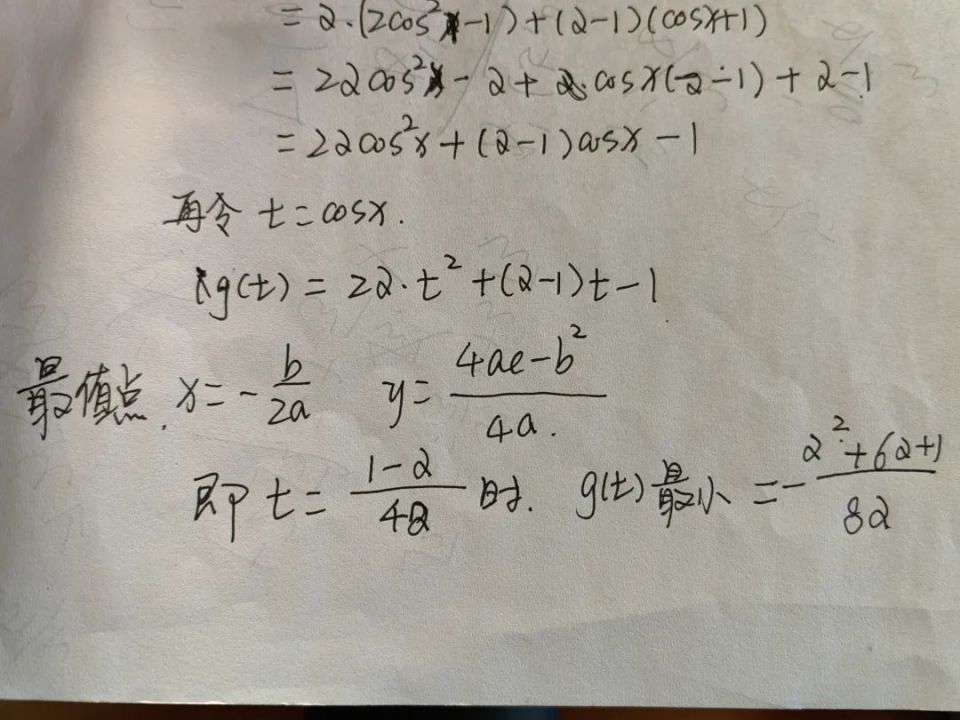 = α·(2cos²x-1)+(α-1)(cosx+1)
= 2αcos²x - α + cosx(α-1) + α-1
= 2αcos²x+(α-1)cosx-1
再令 t=cosx.
g(t) = 2α·t²+(α-1)t-1
最值点. x=-b/2a y=(4ac-b²)/4a.
即 t=(1-α)/4α 时. g(t)最小 =-(α²+6α+1)/8α